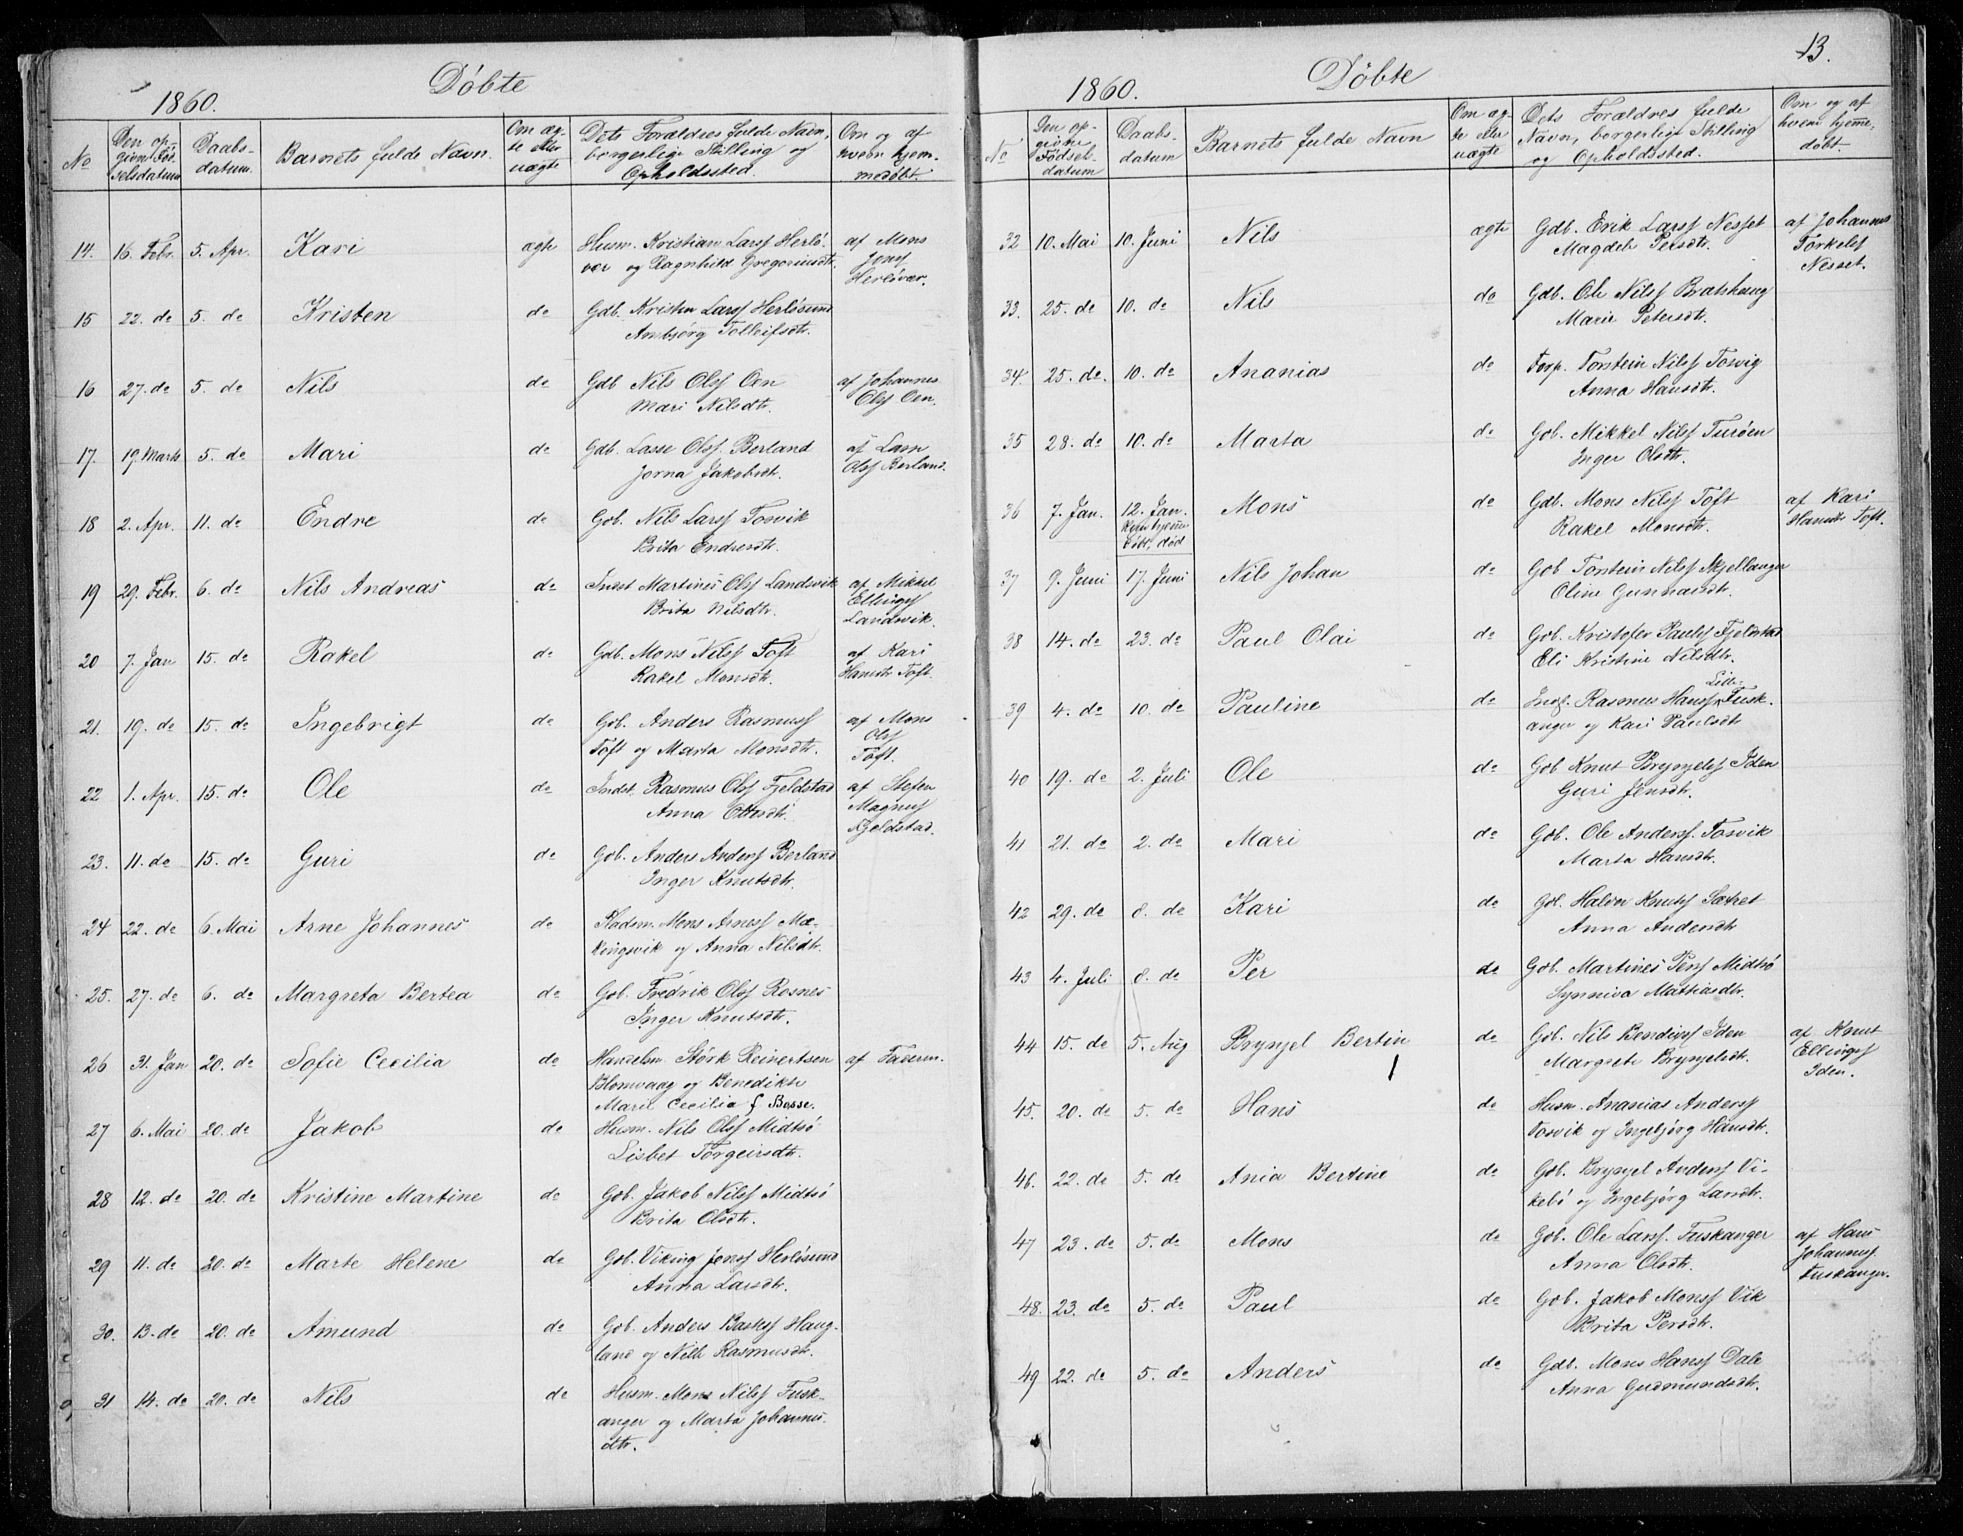 Döbte
1860.
No
Den opgivne Födselsdatum
Daabsdatum.
Barnets fulde Navn.
Om ægte eller uægte
Dets Forældres fulde Navn, borgerlige Stilling og Opholdssted.
Om og af hvem hjemmedöbt.
14. 16. Febr. 5. Apr. Kari ægte Husm. Kristian Larss Herlö- af Mons
vær og Ragnhild Gregoriusdtr. Jonss
Herlövær.
15 22. do 5. do Kristen do Gdb. Kristen Larss Herlösund
Anbjörg Tolleifsdtr.
16 27. do 5. do Nils do Gdb Nils Olss Oen af Johannes
Mari Nilsdtr. Olss Oen.
17. 19. Marts 5. do Mari do Gdb. Lasse Olss. Berland af Lars
Jorna Jakobsdtr. Olss Berland.
18 2. Apr. 11. do Endre do Gdb. Nils Larss Tosvik
Brita Endresdtr.
19 29. Febr. 6. do Nils Andreas do Indst Martinus Olss Landsvik af Mikkel
Brita Nilsdtr. Ellingss
Landsvik.
20 7. Jan 15. do Rakel do Gdb. Mons Nilss Toft af Kari
Rakel Monsdtr. Hansdtr Toft.
21. 19. do 15. do Ingebrigt do Gdb. Anders Rasmuss af Mons
Toft og Marta Monsdtr. Olss
Toft.
22 1. Apr. 15. do Ole do Indst. Rasmus Olss Fjeldstad af Stefen
Anna Ottesdtr. Magnuss
Fjeldstad.
23. 11. do 15. do Guri do Gdb. Anders Anderss Berland
Inger Knutsdtr.
24 22. do 6. Mai Arne Johannes do Pladsm. Mons Arness Mæ-
kingsvik og Anna Nilsdtr.
25. 27. do 6. do Margreta Bertea do Gdb. Fredrik Olss Rosnes
Inger Knutsdtr.
26 31. Jan 20. do Sofie Cecilia do Handelsm. Störk Reinertsen af Faderen.
Blomvaag og Benedikte
Maril Cecilia f. Basse.
27 6. Mai 20. do Jakob do Husm. Nils Olss Midtsö
Lisbet Torgeirsdtr.
28 12. do 20. do Kristine Martine do Gdb. Jakob Nilss Midtsö
Brita Olsdtr.
29 11. do 20. do Marte Helene do Gdb. Viking Jonss Herlösund
Anna Larsdtr.
30. 13. do 20. do Amund do Gdb. Anders Haug-
land og Nille Rasmusdtr.
31 14. do 20. do Nils do Husm. Mons Nilss Tusk-
anger og Marta Johannes-
dtr.
13.
Döbte
1860.
No
Den opgivne Födselsdatum
Daabsdatum
Barnets fulde Navn
Om ægte eller uægte
Dets Forældres fulde Navn, borgerlige Stilling og Opholdssted.
Om og af hvem hjemmedöbt.
32 10. Mai 10. Juni Nils ægte Gdb. Erik Larss Nesset af Johannes
Magdeli Persdtr. Torkelss
Nesset.
33. 25. do 10. do Nils do Gdb. Ole Nilss Bratshaug
Marie Petersdtr.
34. 25. do. 10. do Ananias do Torp. Torstein Nilss Tosvig
Anna Hansdtr.
35 28. do 10. do Marta do Gdb. Mikkel Nilss Turöen
Inger Olsdtr.
36 7. Jan. 12. Jan. Mons do Gdb. Mons Nilss Toft af Kari
kun hjemme Rakel Monsdtr. Hansdtr Toft.
döbt, död
37 9. Juni 17. Juni Nils Johan do Gdb Torstein Nilss Skjellanger
Oline Gunnarsdtr.
38 14. do 23. do Paul Olai do Gdb. Kristofer Paulss Fjeldstad
Eli Kristine Nilsdtr.
39 4. do 10. do Pauline do Inds. Rasmus Hanss Lille-Tusk-
anger og Kari Paulsdtr
40 19. do 2. Juli Ole do Gdb Knut Brynjelss Iden
Guri Jensdtr.
41 21. do 2. do Mari do Gdb. Ole Anderss. Tosvik
Marta Hansdtr.
42 29. do 8. do Kari do Gdb. Halvor Knutss Sætret
Anna Andersdtr
43 4. Juli 8. do Per do Gdb. Martines Perss Midtsö
Synniva Mattiasdtr.
44 15. do 5. Aug Brynjel Bertin do Gdb. Nils Bendixss Iden af Knut
Margrete Brynjelsdtr. Ellingss
Iden.
45. 20. do 5. do Hans do Husm. Ananias Anderss
Tosvik og Ingebjörg Hansdtr.
46. 22. do 5. do Ania Bertine do Gdb. Brynjel Anderss Vi-
kebö og Ingebjörg Larsdtr.
47 23. do 5. do Mons do Gdb. Ole Larss. Tuskanger af Hans
Anna Olsdtr. Johanness
Tuskanger.
48. 23. do 5. do Paul do Gdb. Jakob Monss Vik
Brita Persdtr.
49 22. do 5. do Anders do Gdb. Mons Hanss Dale
Anna Gudmundsdtr.